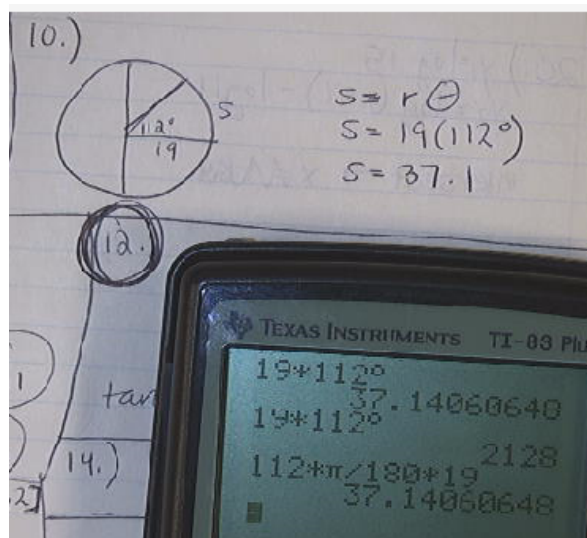 10.)
S
112°
19
S = r θ
S = 19(112°)
S = 37.1
12.
TEXAS INSTRUMENTS TI-83 Plu
19*112°
37.14060648
19*112°
2128
112*π/180*19
37.14060648
1
tan
14.)
.2]